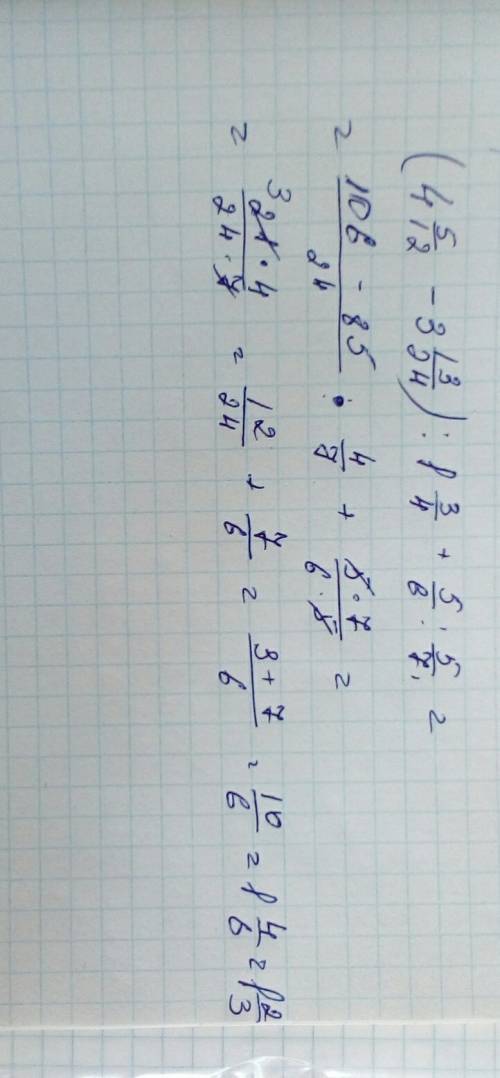 (4 5/12 - 3 13/24) : 1 3/4 + 5/6 : 5/7 =
= (106 - 85)/24 · 4/7 + (5·7)/(6·5) =
= (3 21·4)/(24·7) = 12/24 + 7/6 = (3+7)/6 = 10/6 = 1 4/6 = 1 2/3